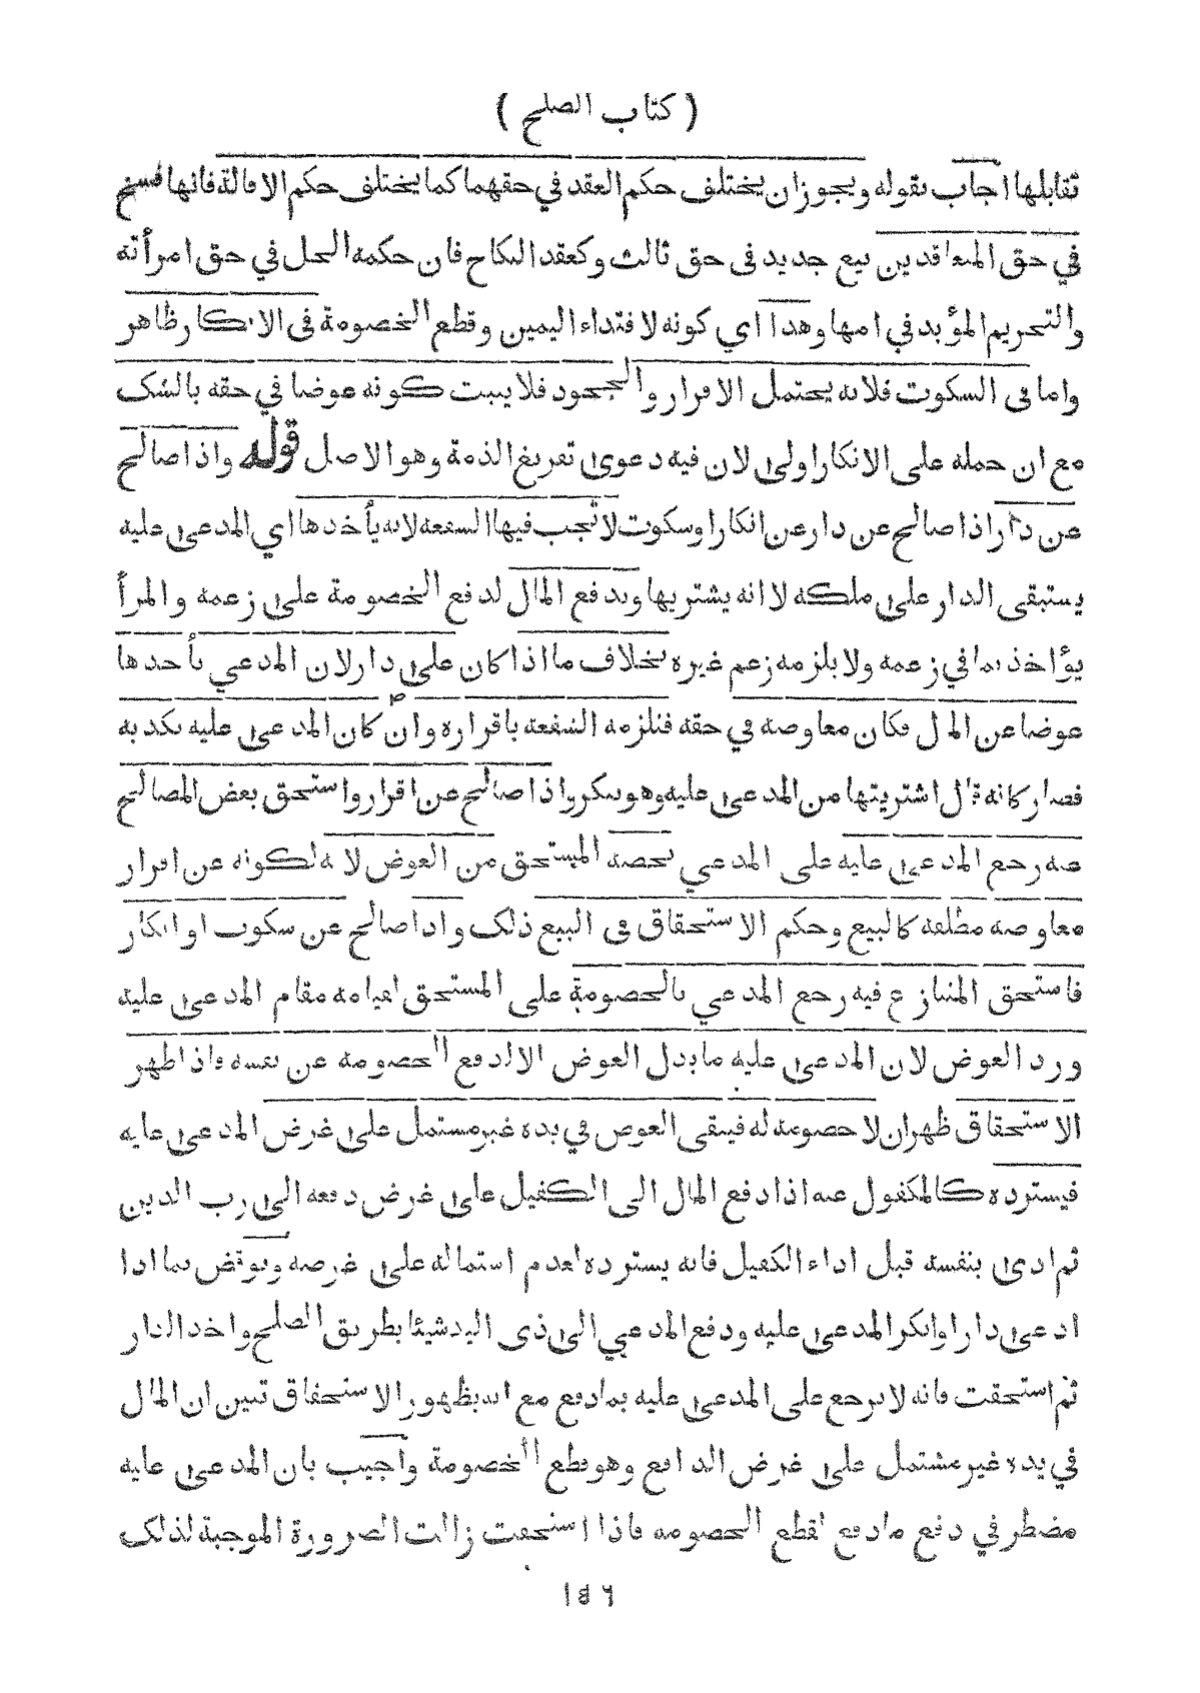 ( كتاب الصلح )
تقابلها اجاب بقوله ويجوز ان يختلف حكم العقد في حقهما كما يختلف حكم الاقالة فانها فسخ
في حق المتعاقدين بيع جديد في حق ثالث وكعقد النكاح فان حكمه الحل في حق امرأته
والتحريم المؤبد في امها وهذا اي كونه لافتداء اليمين وقطع الخصومة في الانكار ظاهر
واما في السكوت فلانه يحتمل الاقرار والجحود فلا يثبت كونه عوضا في حقه بالشك
مع ان حمله على الانكار اولى لان فيه دعوى تفريغ الذمة وهو الاصل قوله واذا صالح
عن دار اذا صالح عن دار عن انكار او سكوت لا تجب فيها الشفعه لانه يأخذها اي المدعى عليه
يستبقى الدار على ملكه لا انه يشتريها وبدفع المال لدفع الخصومة على زعمه والمرأ
يؤاخذ بما في زعمه ولا يلزمه زعم غيره بخلاف ما اذا كان على دار لان المدعي يأخذها
عوضا عن المال فكان معاوضه في حقه فتلزمه الشفعه باقراره وان كان المدعى عليه يكذبه
فصار كانه قال اشتريتها من المدعى عليه وهو ينكر واذا صالح عن اقرار واستحق بعض المصالح
عنه رجع المدعى عليه على المدعي بحصه المستحق من العوض لانه لكونه عن اقرار
معاوضه مطلقه كالبيع وحكم الاستحقاق في البيع ذلك واذا صالح عن سكوت او انكار
فاستحق المتنازع فيه رجع المدعي بالخصومة على المستحق لقيامه مقام المدعى عليه
ورد العوض لان المدعى عليه ما بدل العوض الا لدفع الخصومه عن نفسه فاذا ظهر
الاستحقاق ظهر ان لا خصومة له فيبقى العوض في يده غير مشتمل على غرض المدعى عليه
فيسترده كالمكفول عنه اذا دفع المال الى الكفيل على غرض دفعه الى رب الدين
ثم ادى بنفسه قبل اداء الكفيل فانه يسترده لعدم اشتماله على غرضه ونوقض بما اذا
ادعى دارا وانكر المدعى عليه ودفع المدعي الى ذي اليد شيئا بطريق الصلح واخذ الدار
ثم استحقت فانه لا يرجع على المدعى عليه بما دفع مع انه بظهور الاستحقاق تبين ان المال
في يده غير مشتمل على غرض الدافع وهو قطع الخصومة واجيب بان المدعى عليه
مضطر في دفع ما دفع لقطع الخصومه فاذا استحقت زالت الضرورة الموجبة لذلك